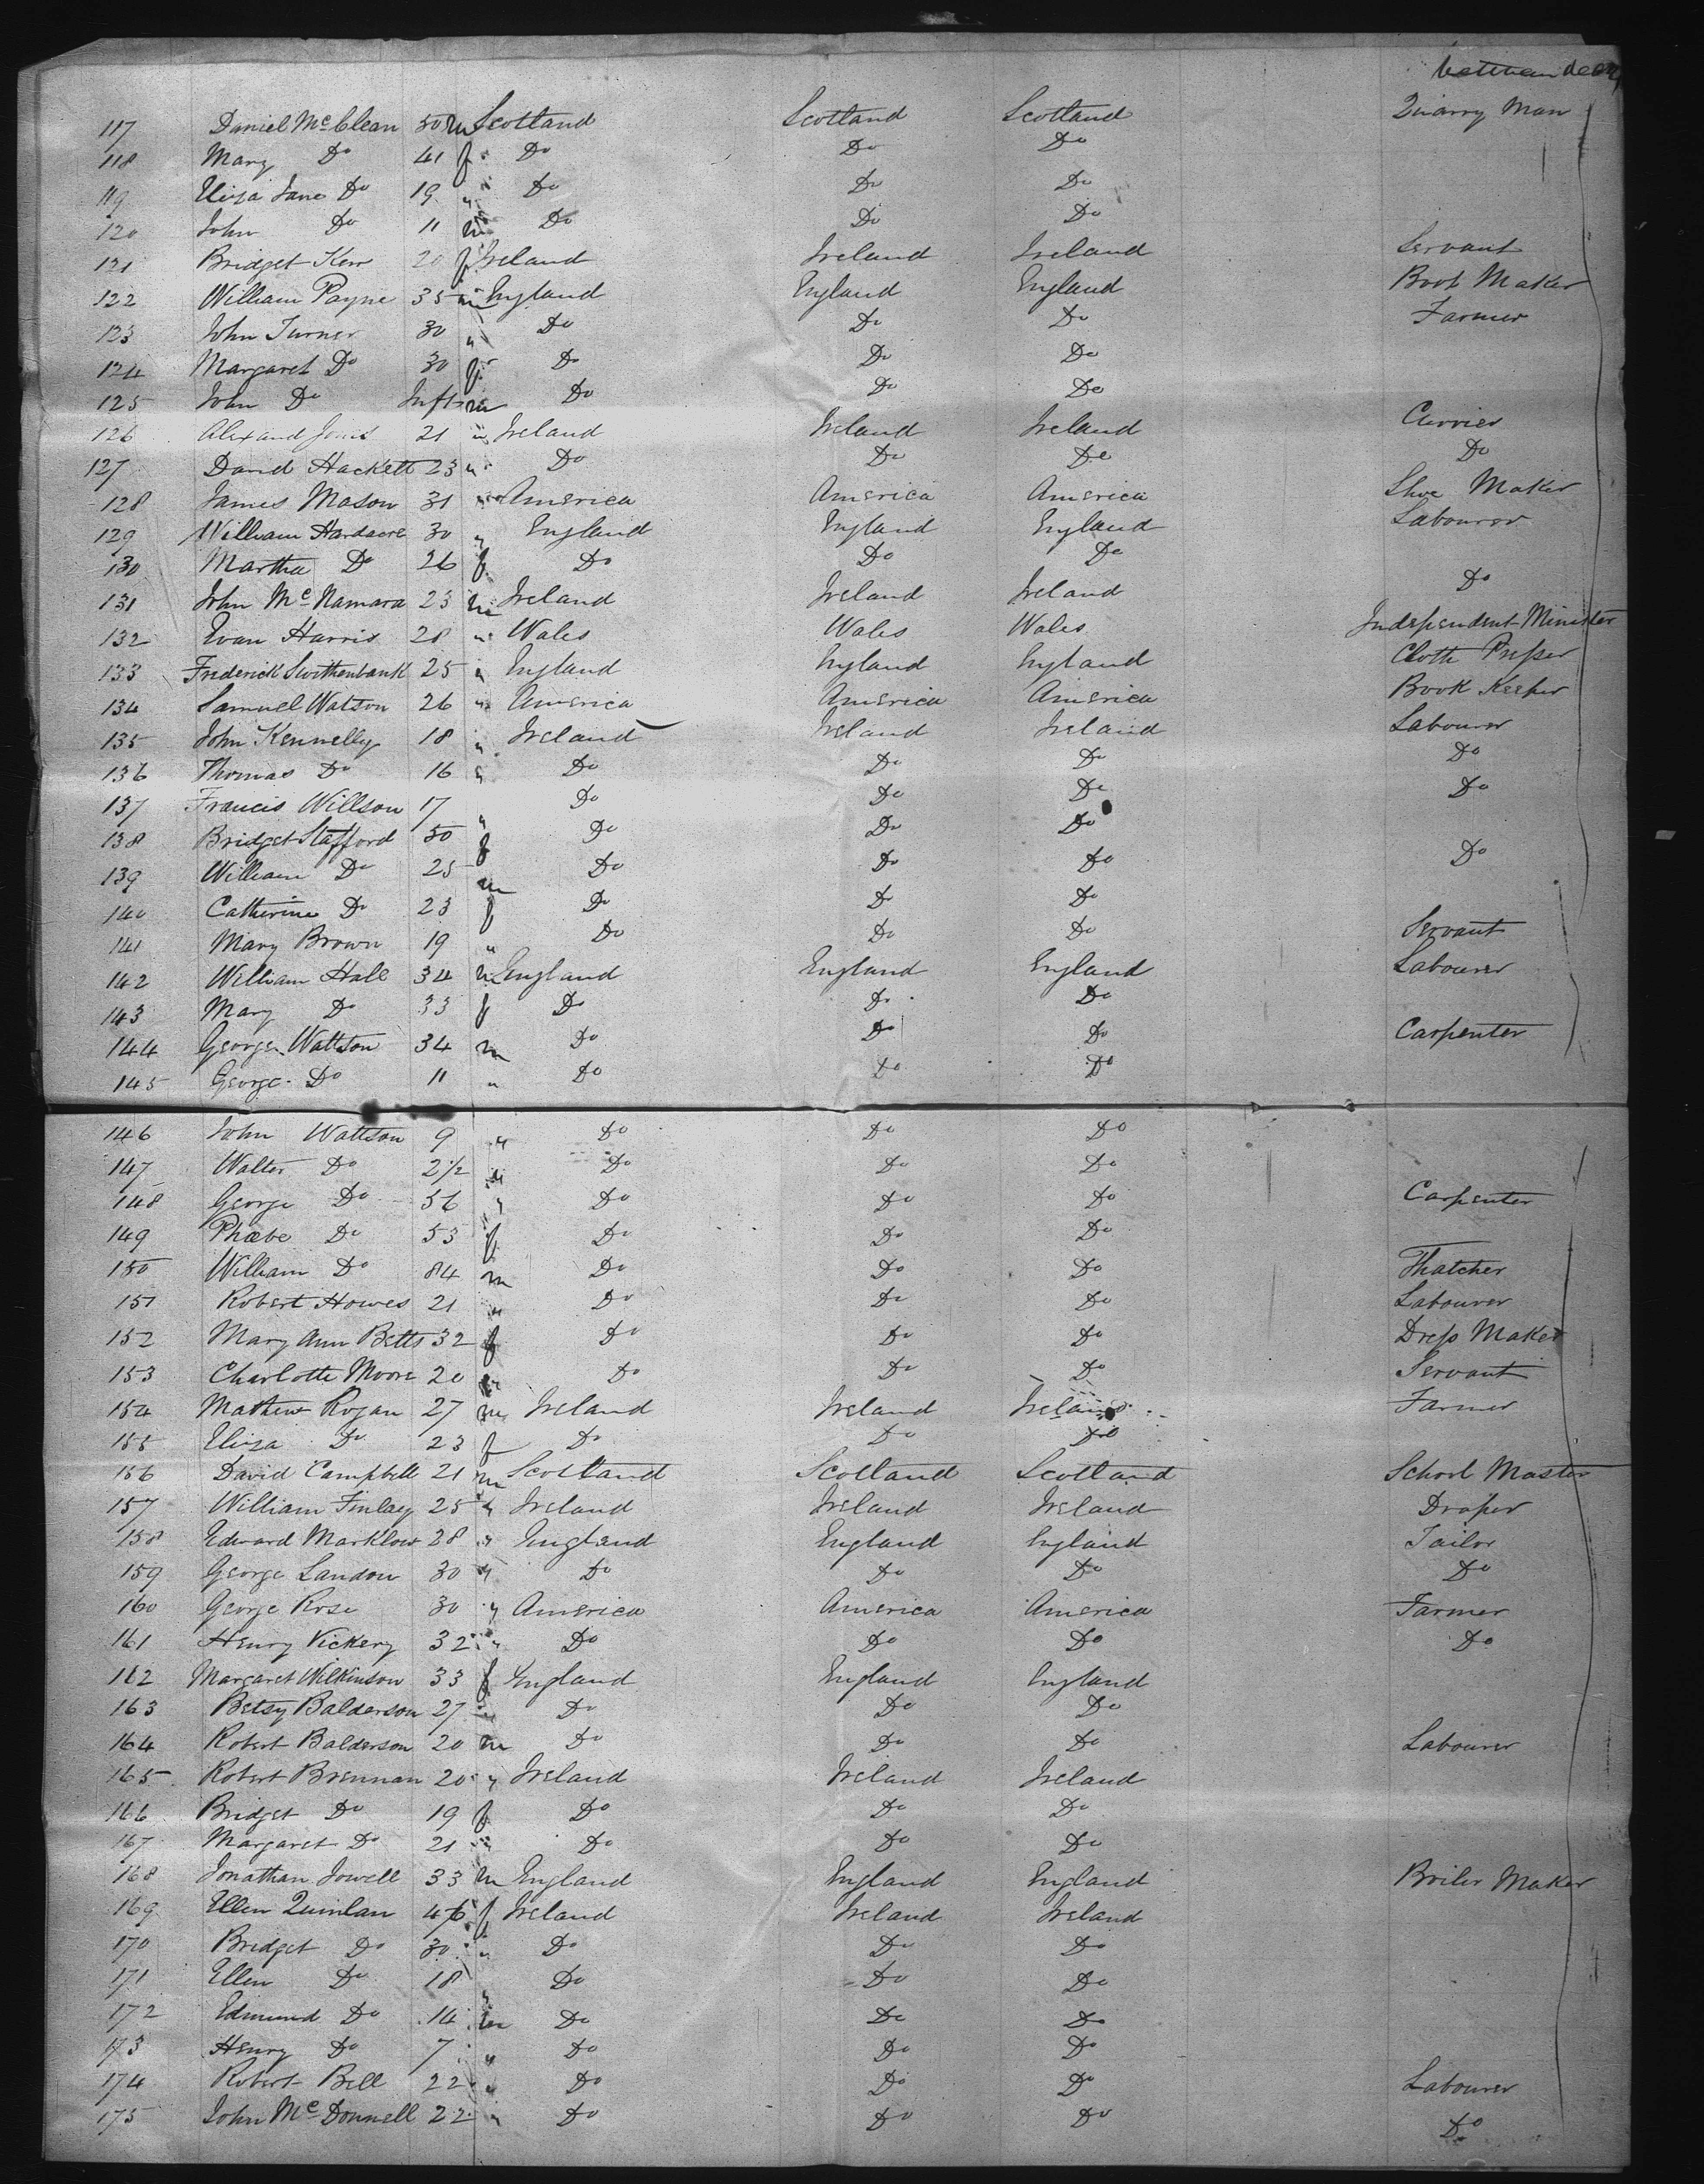 between decks
117 Daniel McClean 50 m Scotland Scotland Scotland Quarry Man
118 Mary Do 41 f Do Do Do
119 Eliza Jane Do 19 " Do Do Do
120 John Do 11 m Do Do Do
121 Bridget Kerr 20 f Ireland Ireland Ireland Servant
122 William Payne 35 m England England England Boot Maker
123 John Turner 30 " Do Do Do Farmer
124 Margaret Do 30 f Do Do Do
125 John Do Inft m Do Do Do
126 21 " Ireland Ireland Ireland Currier
127 David Hackett 23 " Do Do Do Do
128 James Mason 31 " America America America Shoe Maker
129 William Hardacre 30 " England England England Labourer
130 Martha Do 26 f Do Do Do
131 John McNamara 23 m Ireland Ireland Ireland Do
132 Evan Harris 28 " Wales Wales Wales Independent Minister
133 Frederick 25 " England England England Cloth Presser
134 Samuel Watson 26 " America America America Book Keeper
135 John Kennelly 18 " Ireland Ireland Ireland Labourer
136 Thomas Do 16 " Do Do Do Do
137 Francis Willson 17 " Do Do Do Do
138 Bridget Stafford 50 f Do Do Do
139 William Do 25 m Do Do Do Do
140 Catherine Do 23 f Do Do Do
141 Mary Brown 19 " Do Do Do Servant
142 William Hall 34 m England England England Labourer
143 Mary Do 33 f Do Do Do
144 George Wattson 34 m Do Do Do Carpenter
145 George Do 11 " Do Do Do
146 John Wattson 9 " Do Do Do
147 Walter Do 2 1/2 " Do Do Do
148 George Do 56 " Do Do Do Carpenter
149 Phœbe Do 53 f Do Do Do
150 William Do 84 m Do Do Do Thatcher
151 Robert Howes 21 " Do Do Do Labourer
152 Mary Ann Betts 32 f Do Do Do Dress Maker
153 Charlotte Moore 20 " Do Do Do Servant
154 Mathew Rogan 27 m Ireland Ireland Ireland Farmer
155 Eliza Do 23 f Do Do Do
156 David Campbell 21 m Scotland Scotland Scotland School Master
157 William Finlay 25 " Ireland Ireland Ireland Draper
158 Edward Marklow 28 " England England England Tailor
159 George Landon 30 " Do Do Do Do
160 George Rose 30 " America America America Farmer
161 Henry Vickery 32 " Do Do Do Do
162 Margaret Wilkinson 33 f England England England
163 Betsy Balderson 27 " Do Do Do
164 Robert Balderson 20 m Do Do Do Labourer
165 Robert Brennan 20 " Ireland Ireland Ireland
166 Bridget Do 19 f Do Do Do
167 Margaret Do 21 " Do Do Do
168 Jonathan Jowell 33 m England England England Boiler Maker
169 Ellen Quinlan 46 f Ireland Ireland Ireland
170 Bridget Do 30 " Do Do Do
171 Ellen Do 18 " Do Do Do
172 Edmund Do 14 m Do Do Do
173 Henry Do 7 " Do Do Do
174 Robert Bell 22 " Do Do Do Labourer
175 John McDonnell 22 " Do Do Do Do